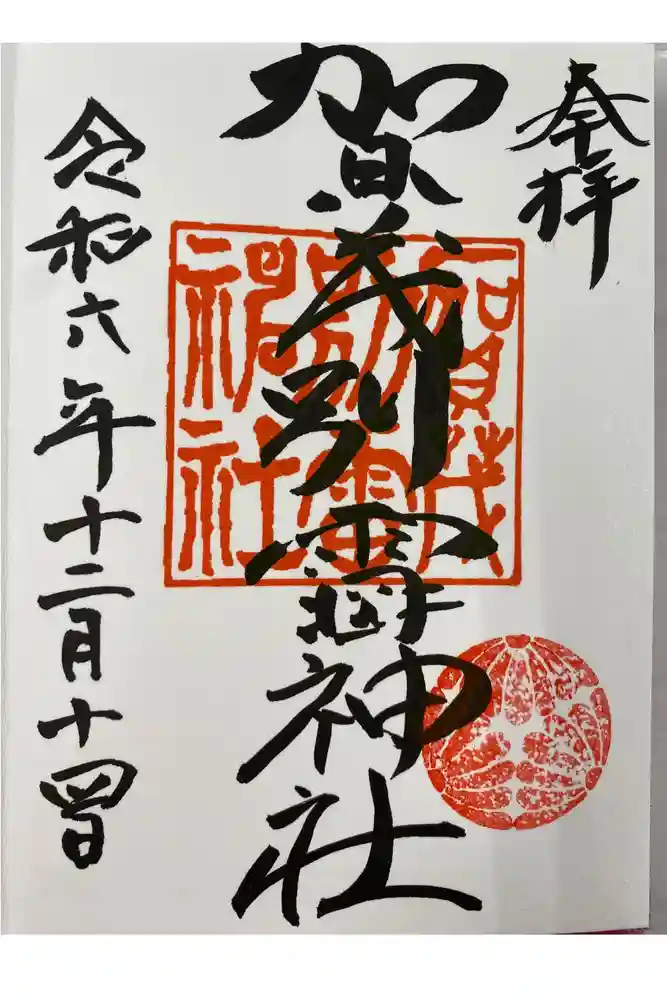 奉拝
賀茂別雷神社
賀茂
別雷
神社
令和六年十二月十四日